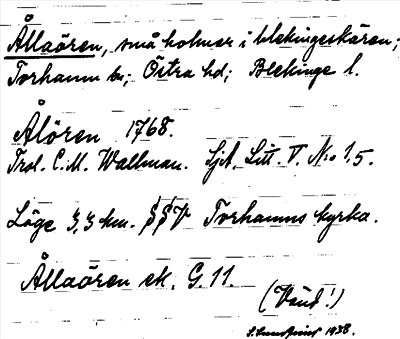 Ållaören, små holmar i blekingeskären;
Torhamn sn; Östra hd; Blekinge l.
Ålören 1768.
Trol. C. M. Wallman. SjA, Litt. V. No 15.
Läge 3,3 km. SSV Torhamns kyrka.
Ållaören ek. G. 11.
(Vänd!)
1938.